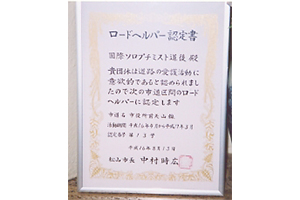 ロードヘルパー認定書
国際ソロプチミスト道後 殿
貴団体は道路の愛護活動に
意欲的であると認められまし
たので次の市道区間のロード
ヘルパーに認定します
市道名 市役所前天山線
活動期間 平成16年3月から平成17年3月
認定番号 第13号
平成16年3月13日
松山市長 中村時広